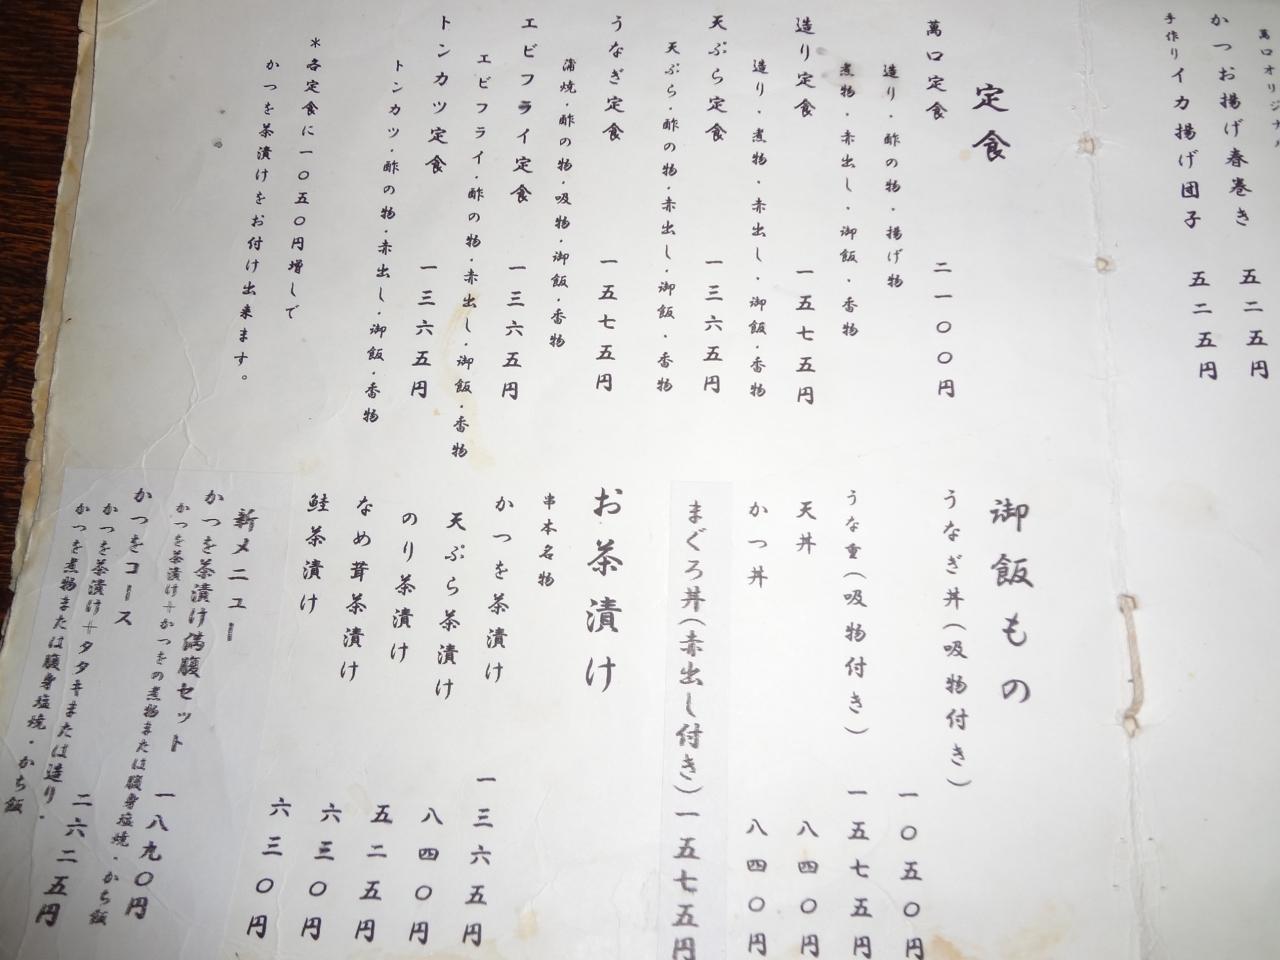 萬口オリジナル
かつお揚げ春巻き 五二五円
手作りイカ揚げ団子 五二五円
定食
萬口定食 二一〇〇円
造り・酢の物・揚げ物
煮物・赤出し・御飯・香物
造り定食 一五七五円
造り・煮物・赤出し・御飯・香物
天ぷら定食 一三六五円
天ぷら・酢の物・赤出し・御飯・香物
うなぎ定食 一五七五円
蒲焼・酢の物・吸物・御飯・香物
エビフライ定食 一三六五円
エビフライ・酢の物・赤出し・御飯・香物
トンカツ定食 一三六五円
トンカツ・酢の物・赤出し・御飯・香物
*各定食に一〇五〇円増しで
かつを茶漬けをお付け出来ます。
御飯もの
うなぎ丼(吸物付き) 一〇五〇円
うな重(吸物付き) 一五七五円
天丼 八四〇円
かつ丼 八四〇円
まぐろ丼(赤出し付き)一五七五円
お茶漬け
串本名物
かつを茶漬け 一三六五円
天ぷら茶漬け 八四〇円
のり茶漬け 五二五円
なめ茸茶漬け 六三〇円
鮭茶漬け 六三〇円
新メニュー
かつを茶漬け満腹セット 一八九〇円
かつを茶漬け+かつをの煮物または腹身塩焼・かち飯
かつをコース 二六二五円
かつを茶漬け+タタキまたは造り・
かつを煮物または腹身塩焼・かち飯